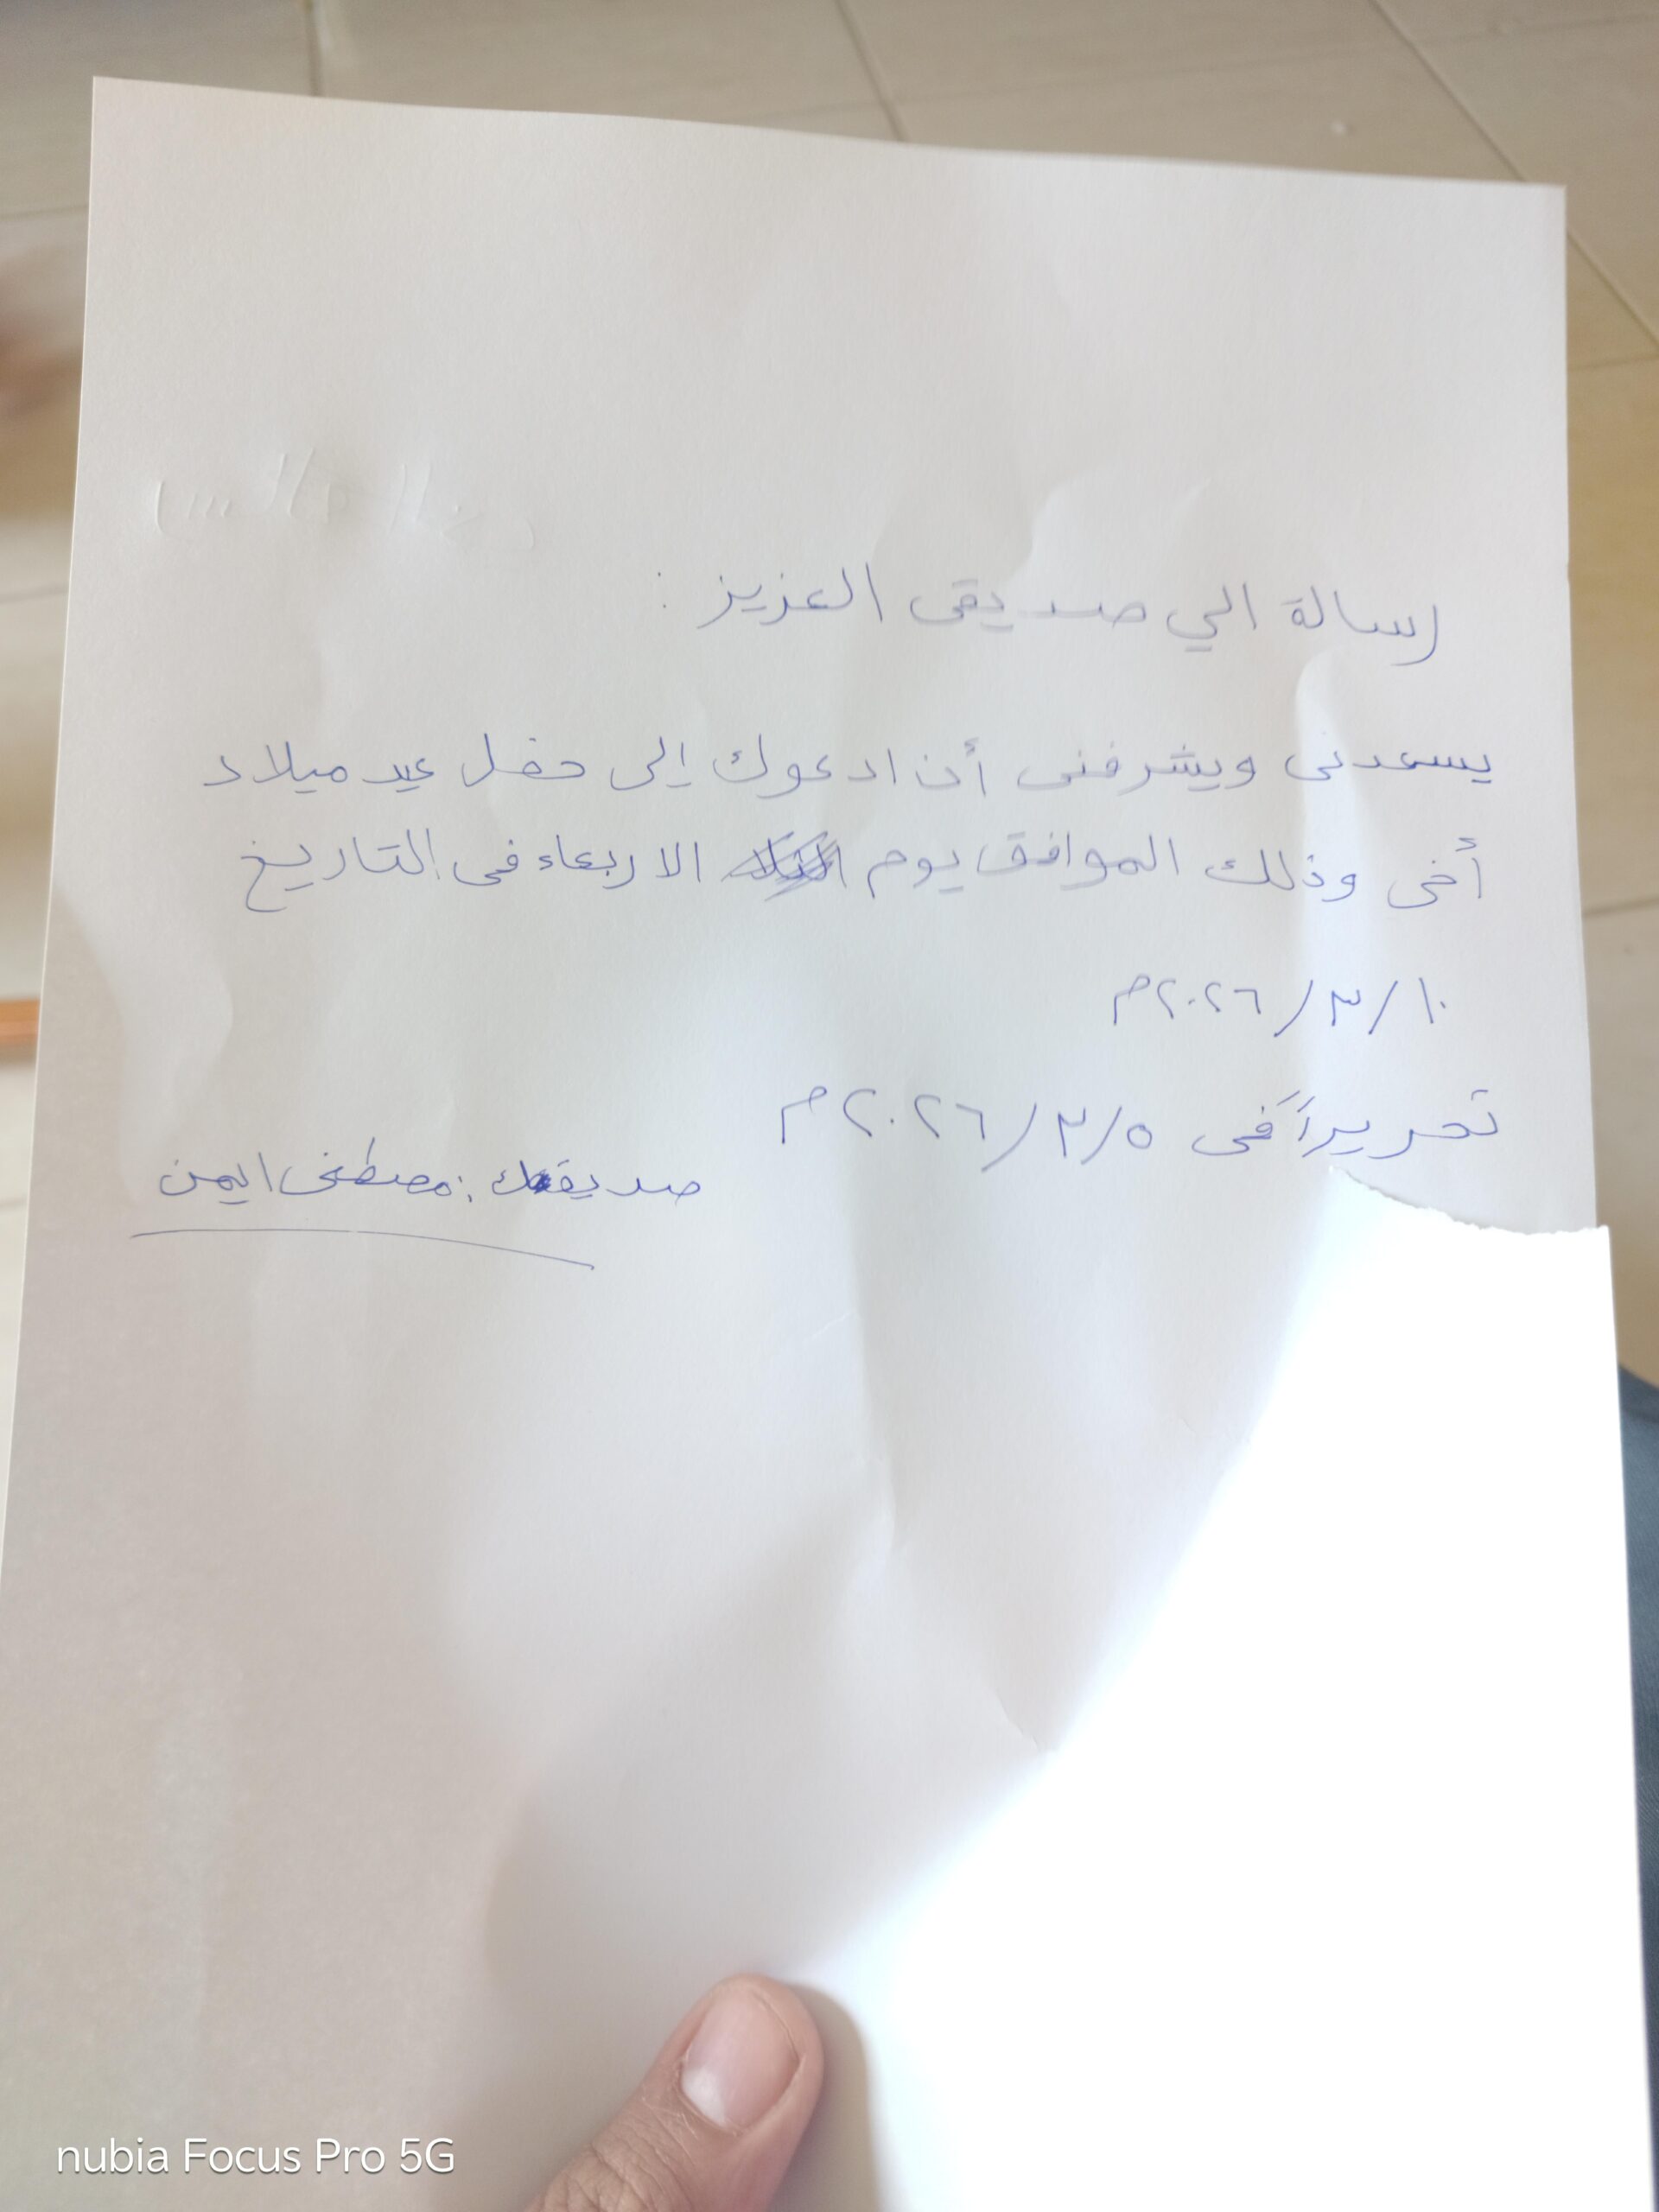 رسالة الي صديقى العزيز :
يسعدنى ويشرفنى أن ادعوك إلى حفل عيد ميلاد
أخى وذلك الموافق يوم الاربعاء فى التاريخ
١٠/٣/٢٠٢٦م
تحريراً فى ٥/٣/٢٠٢٦م
صديقك : مصطفى ايمن
nubia Focus Pro 5G